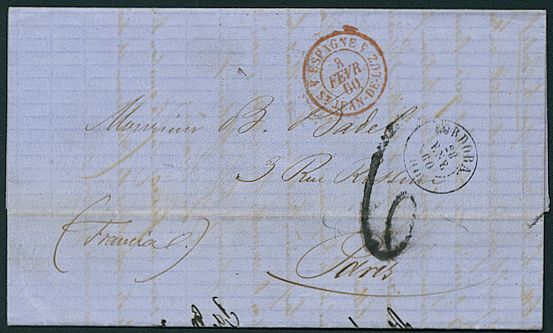 ESPAGNE
3
FEVR.
60
ST JEAN-DE-LUZ
CORDOBA
28
ENE
60
Monsieur B.
3 Rue
(Francia)
Paris
6